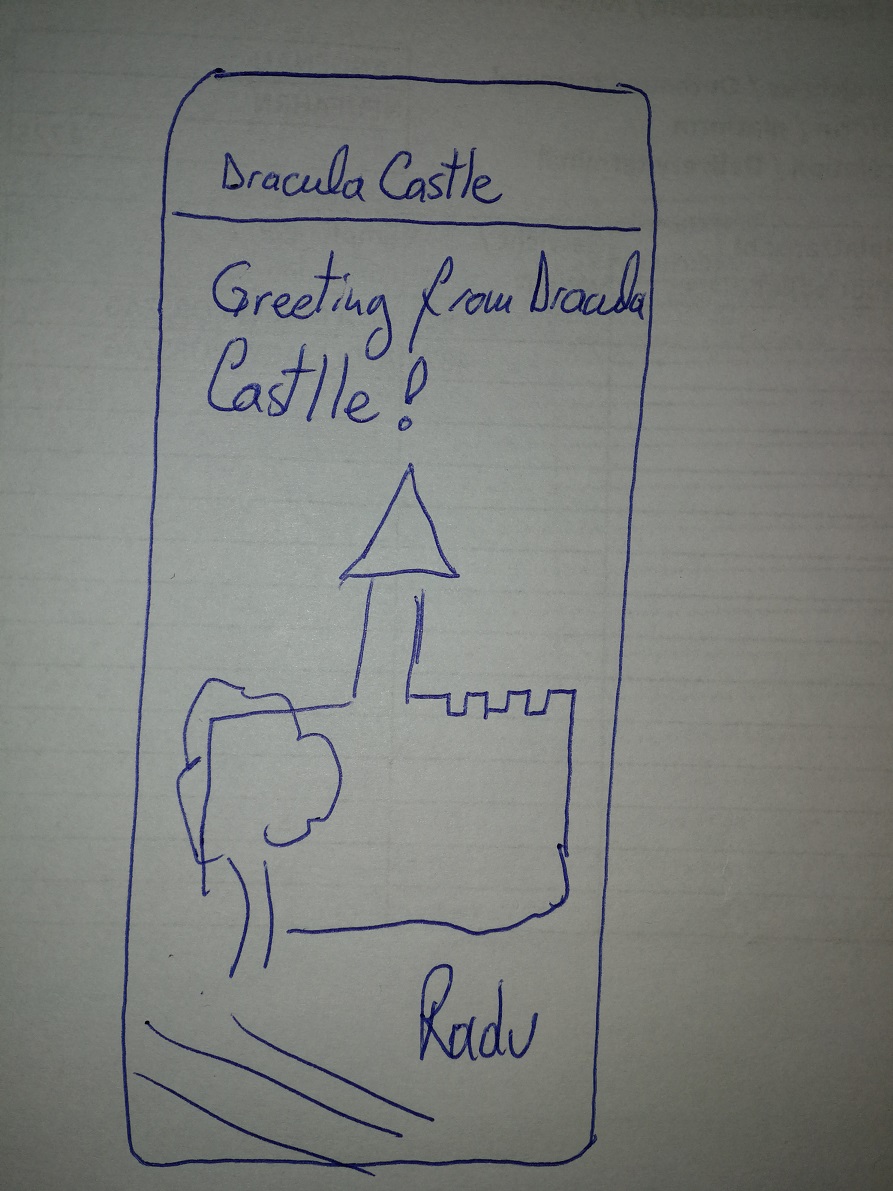 Dracula Castle
Greeting from Dracula
Castlle!
Radu